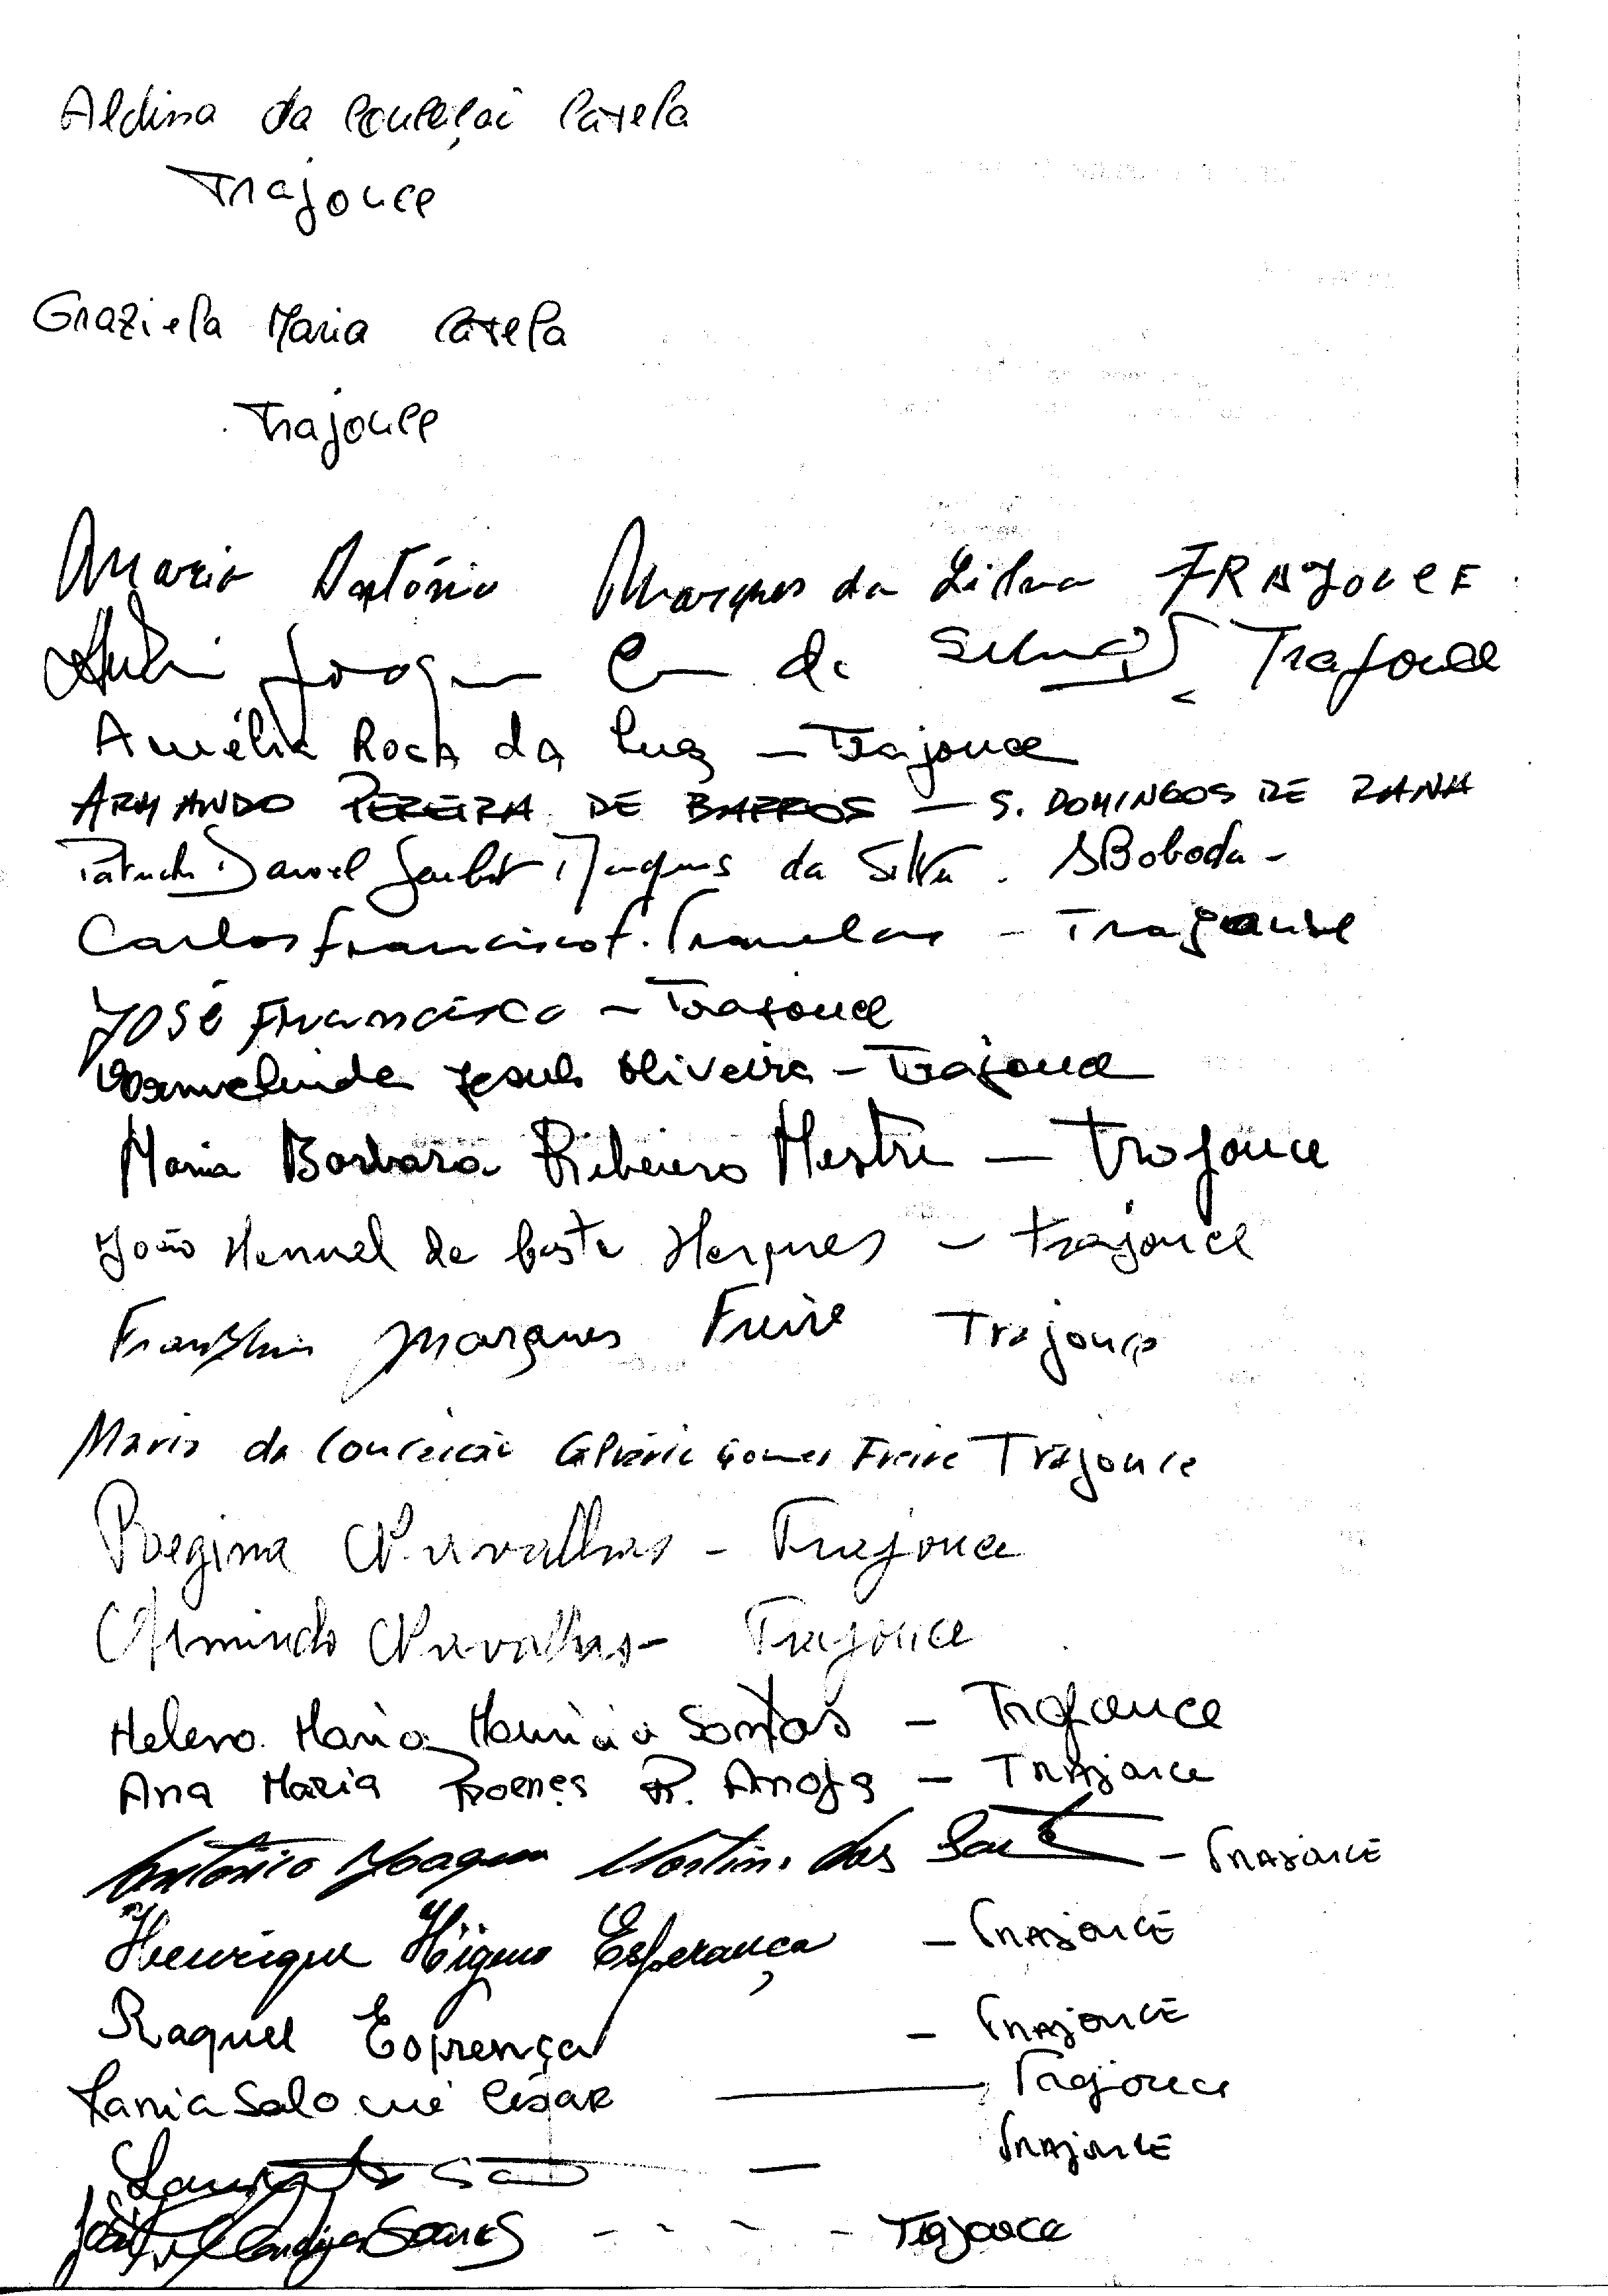 Aldina da Conceição Catela
Trajouce
Graziela Maria Catela
Trajouce
Mario António Marques da Silva TRAJOUCE
Joaquim da Silva Trajouce
Amélia Rocha da Luz - Trajouce
ARMANDO PEREIRA DE BARROS - S. DOMINGOS DE RANA
Daniel Marques da Silva. Boboda -
Carlos Francisco F. - Trajouce
José Francisco - Trajouce
Jesus Oliveira - Trajouce
Maria Barbara Ribeiro Mestre - Trajouce
João Manuel da Costa Marques - Trajouce
Franklin Marques Freire Trajouce
Maria da Conceição Gomes Freire Trajouce
Regina Carvalhas - Trajouce
Armindo Carvalhas - Trajouce
Helena Maria Mauricio Santos - Trajouce
Ana Maria Proença R. - Trajouce
António Joaquim Martins dos Santos - TRAJOUCE
Henrique Higino Esperança - TRAJOUCE
Raquel Esprença - TRAJOUCE
Tania Salomé César - Trajouce
- TRAJOUCE
José Soares - - - - Trajouce